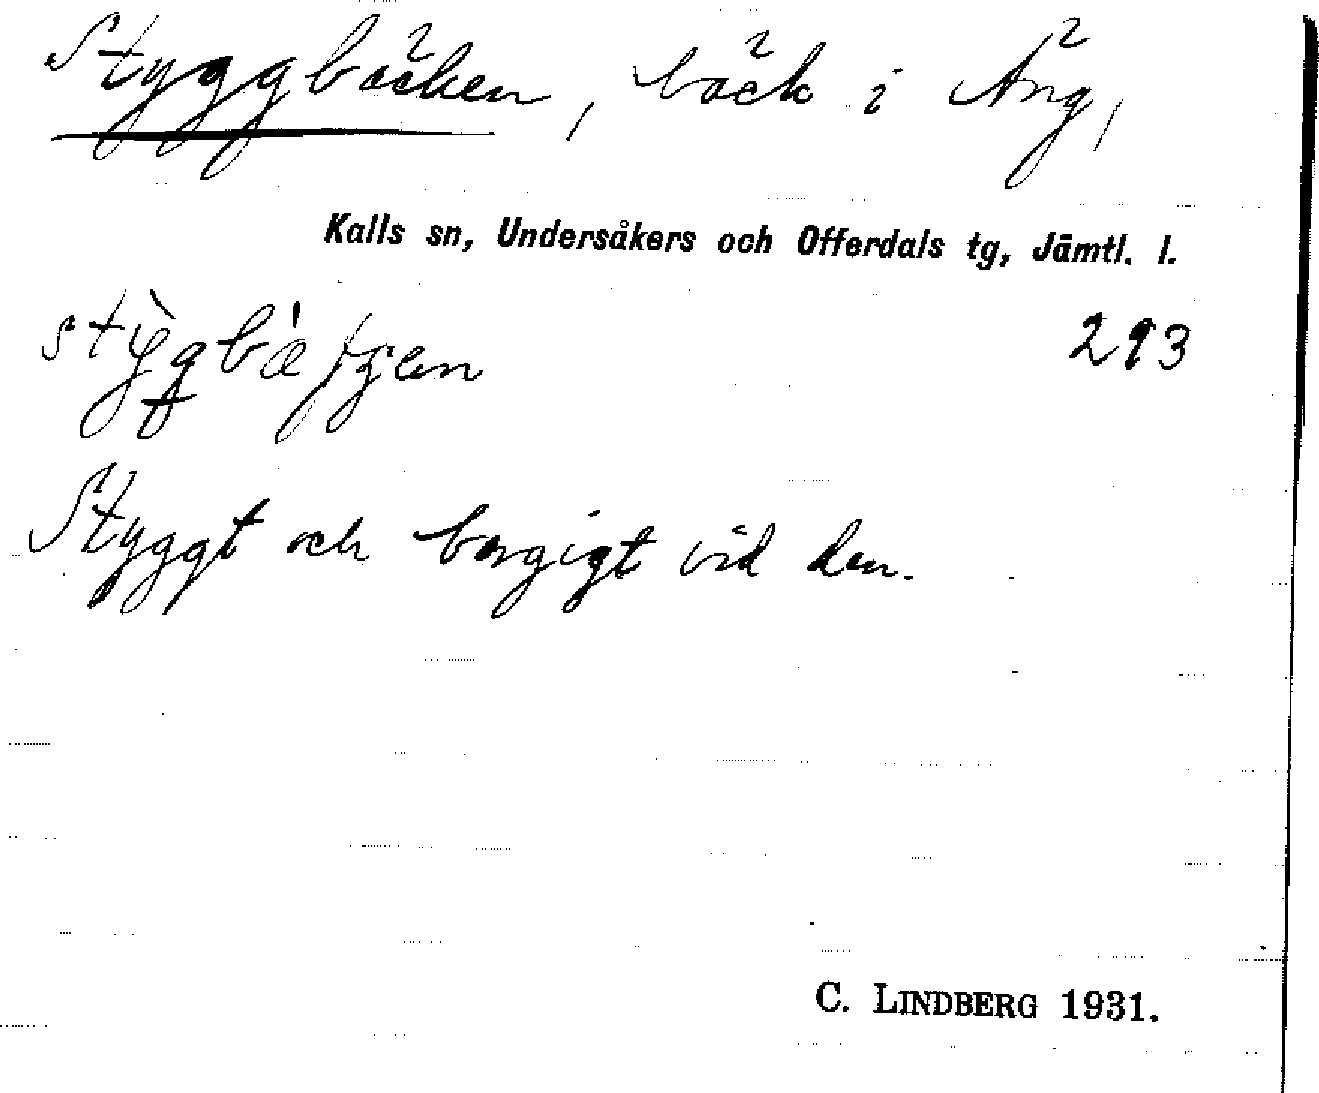 Styggbäcken, bäck i Äng,
Kalls sn, Undersåkers och Offerdals tg, Jämtl. l.
293
Styggt och bergigt vid den.
C. LINDBERG 1931.